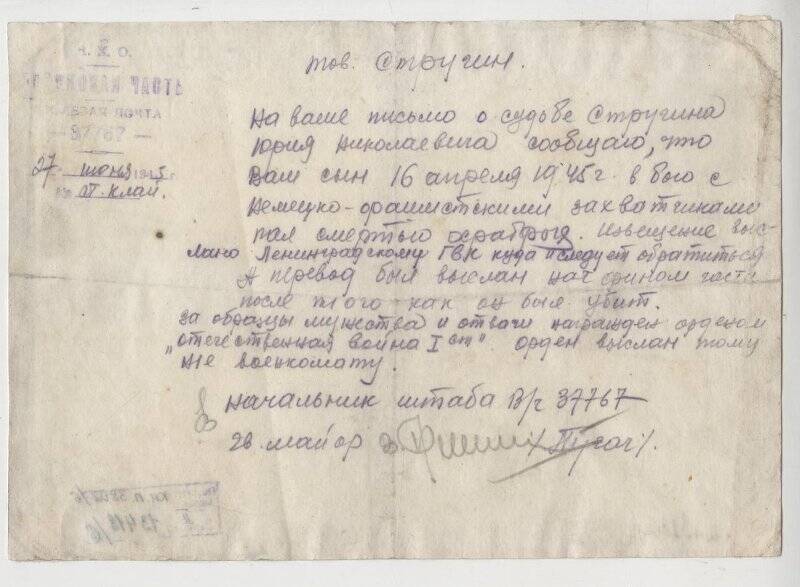 Н. К. О.
ЧАСТЬ
ПОЧТА
27 июня 1945 г
№ ст. клай.
тов. Стругин.
На ваше письмо о судьбе Стругина
Юрия Николаевича сообщаю, что
Ваш сын 16 апреля 1945 г. в бою с
немецко-фашистскими захватчиками
пал смертью храбрых. Извещение выс-
лано Ленинградскому ГВК куда и следует обратиться
А перевод был выслан нач фином части
после того как он был убит.
За образцы мужества и отваги награжден орденом
"отечественная война I ст". орден выслан тому
же военкомату.
Начальник штаба В/ч 37767
гв. майор
КП.П.